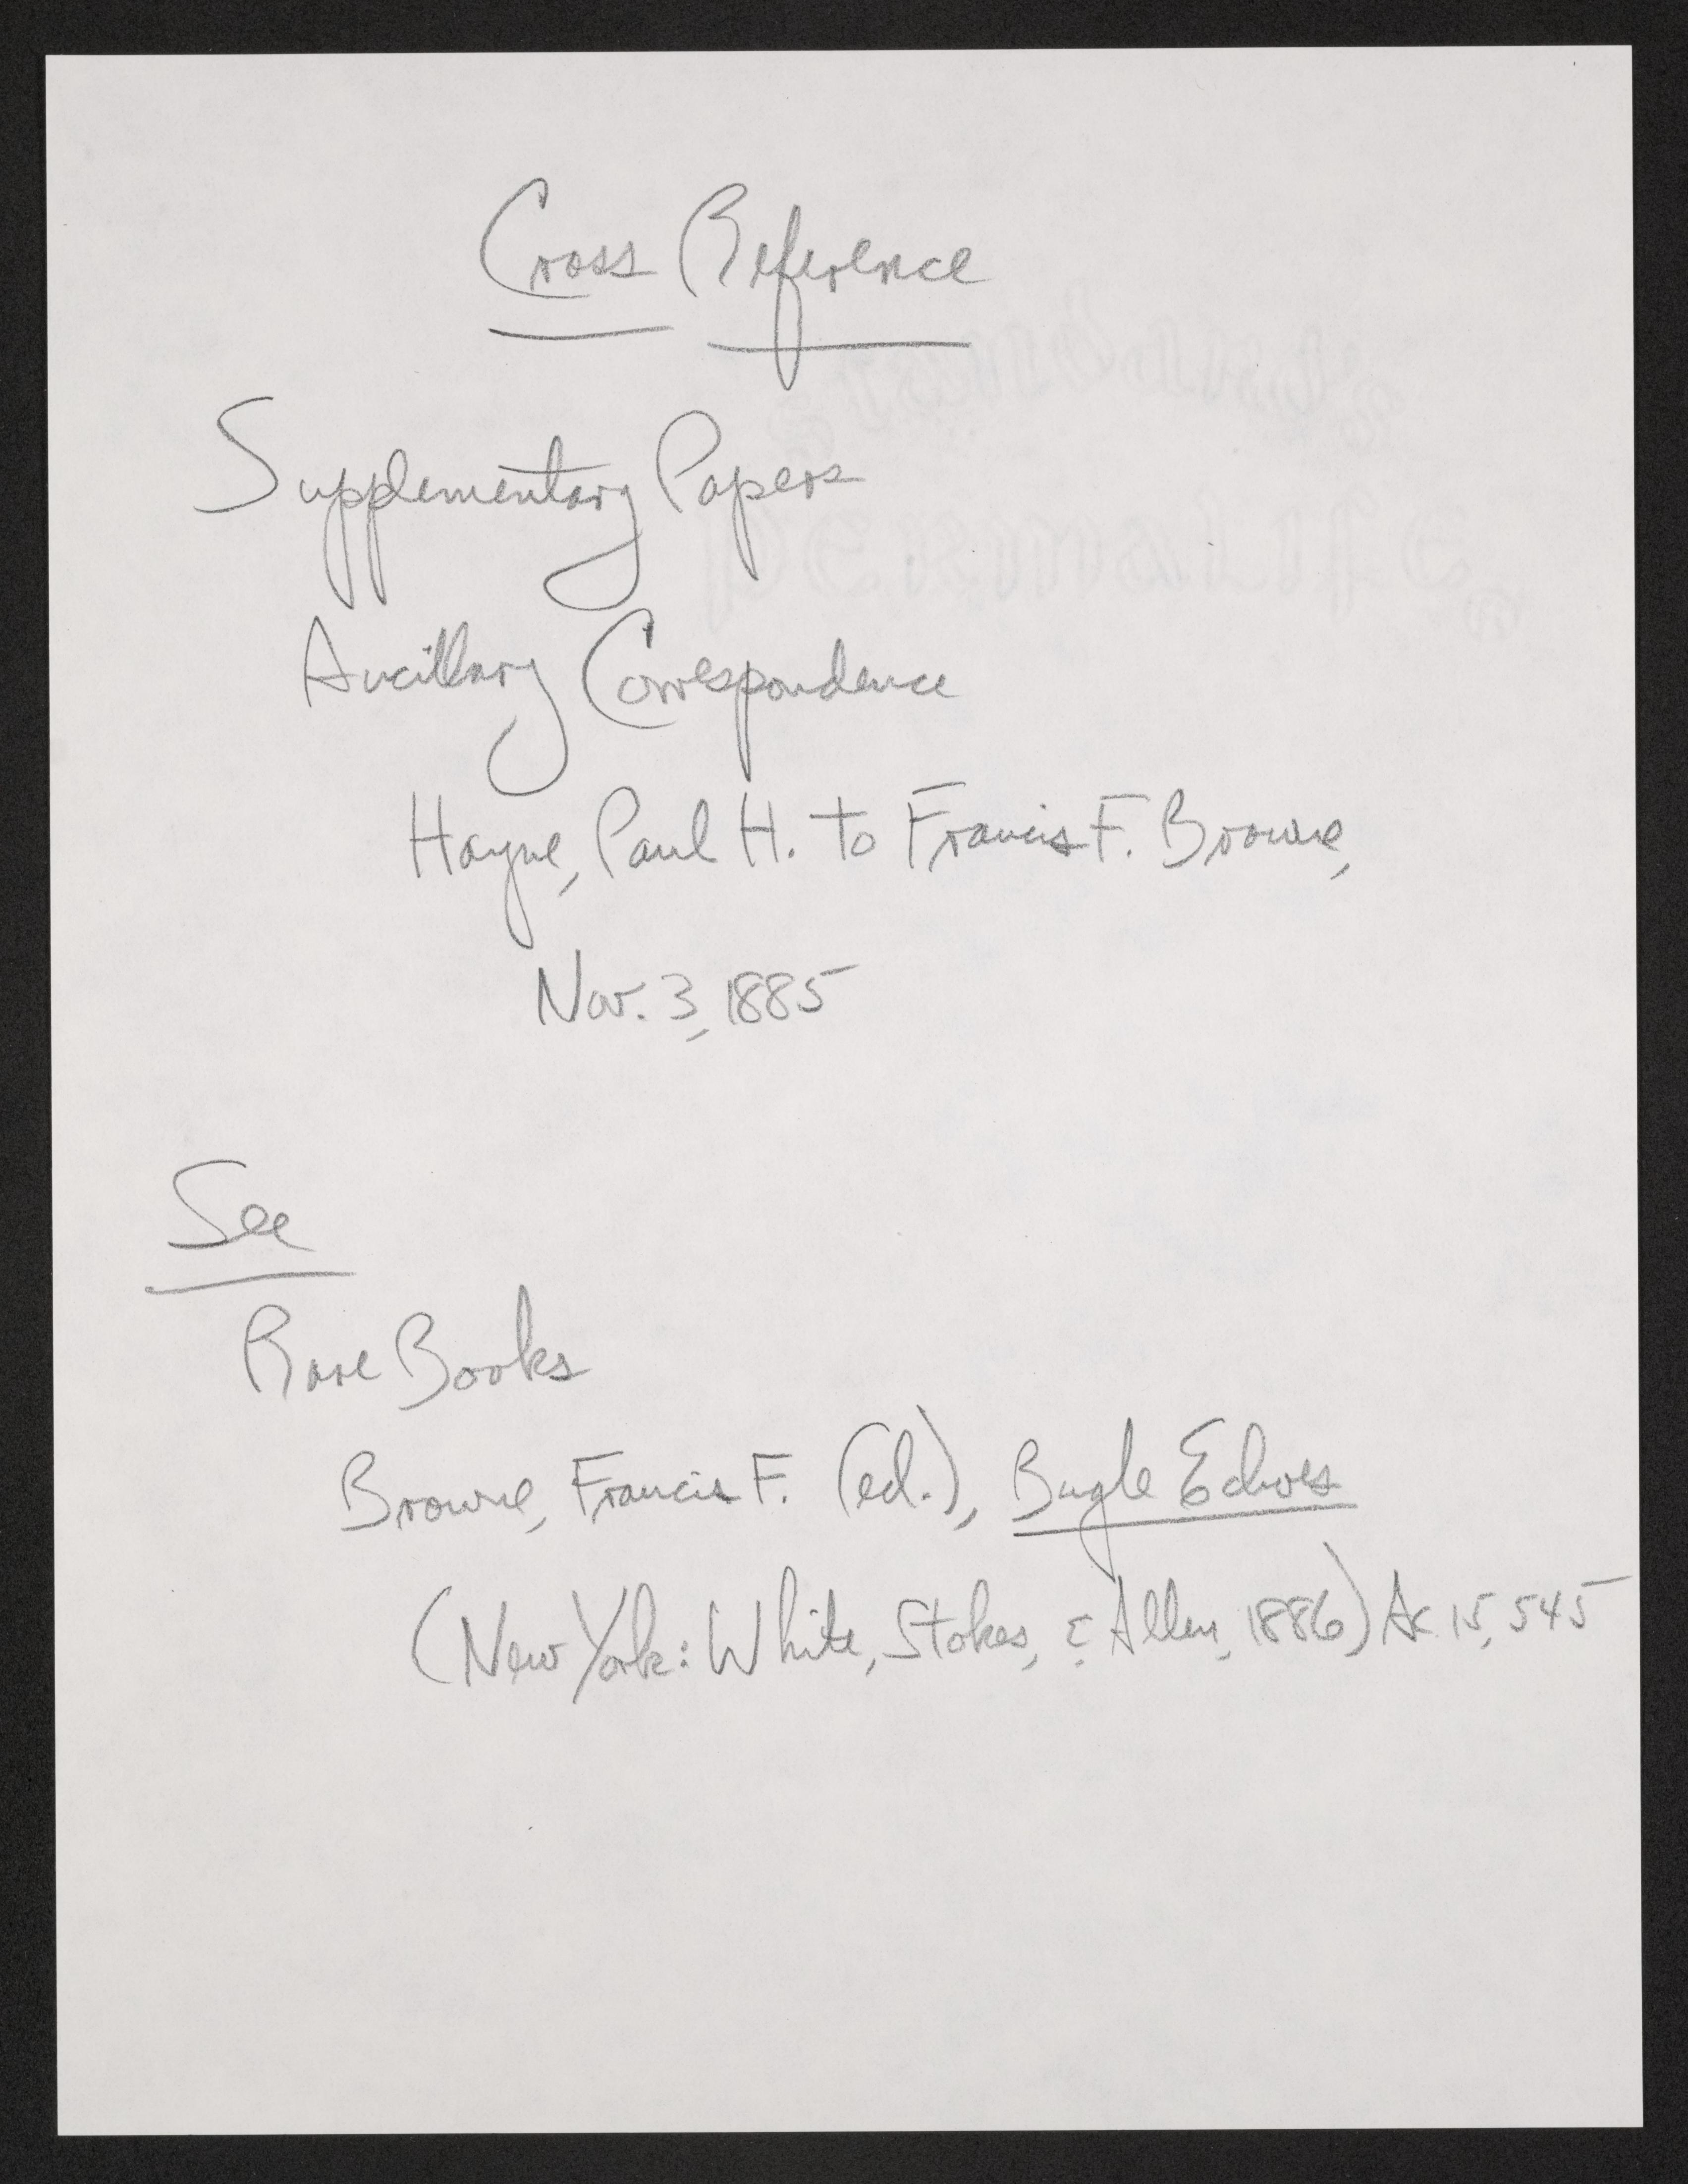 Cross Reference
Supplementary Papers
Ancillary Correspondence
Hayne, Paul H. to Francis F. Browne,
Nov. 3, 1885
See
Rare Books
Browne, Francis F. (ed.), Bugle Echoes
(New York: White, Stokes, & Allen, 1886) Ac 15,545